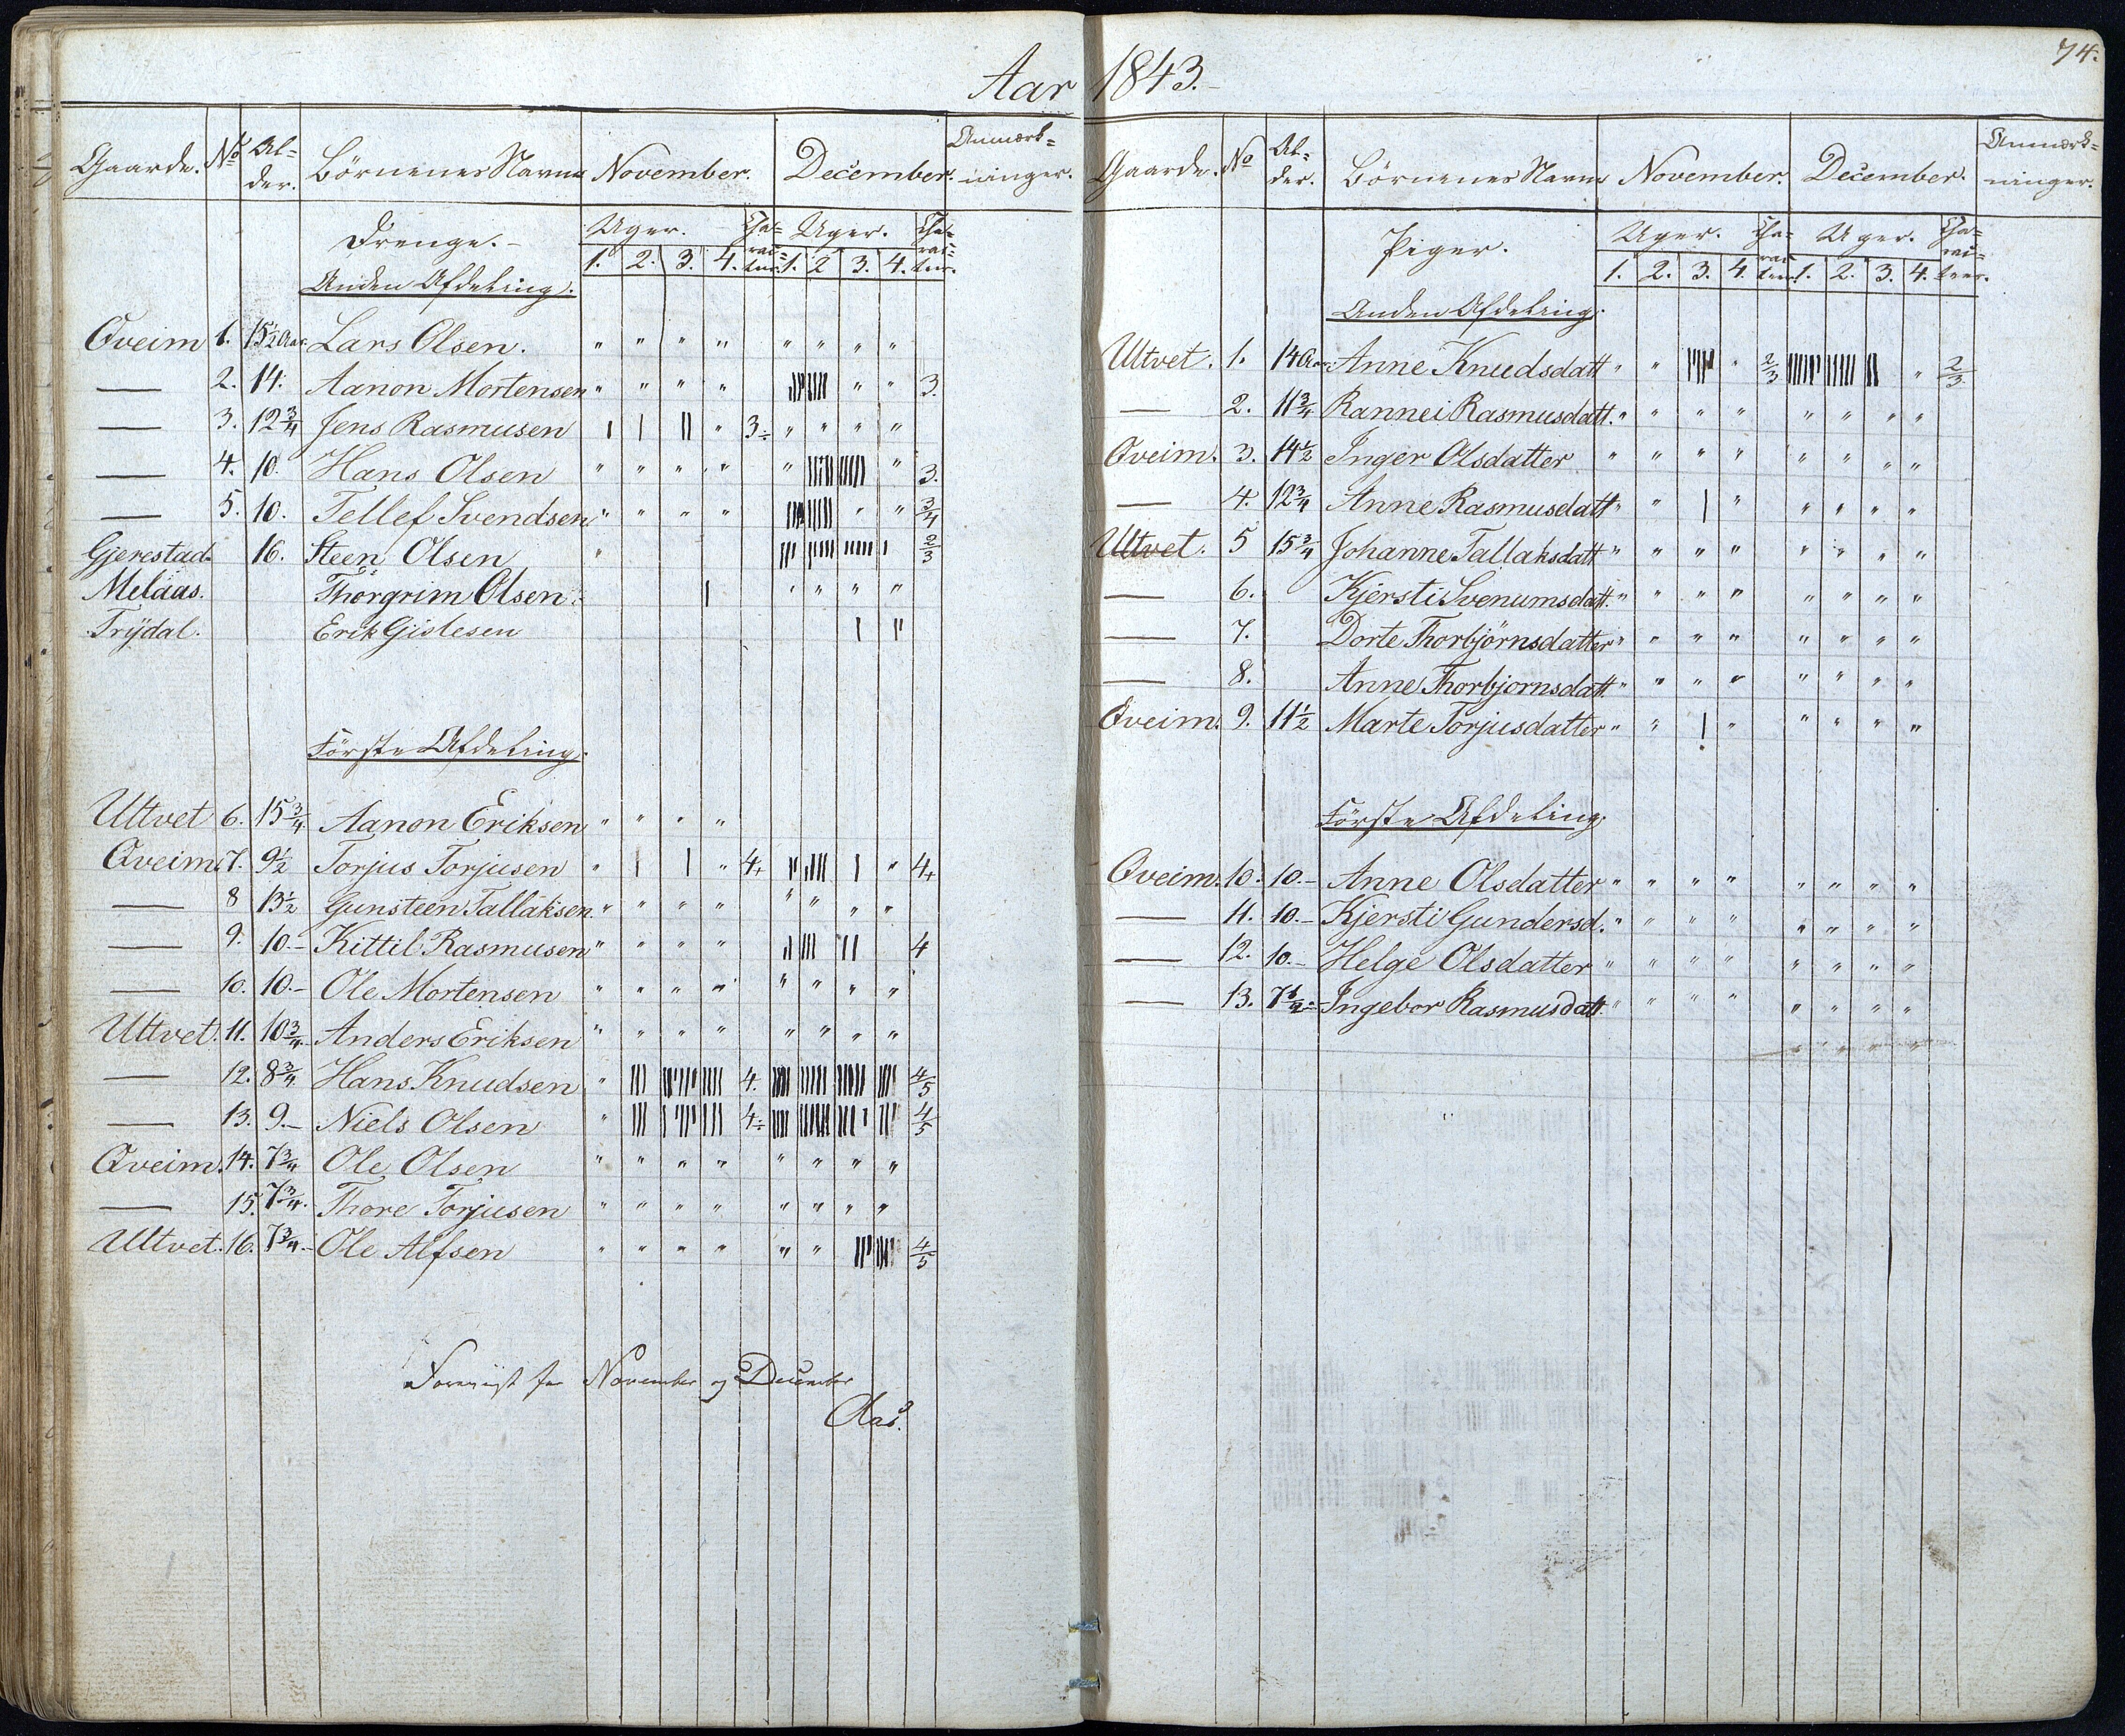 Aar 1843.-
74.
Gaarde. No Al-der. Börnenes Navne November. December. Anmærk-ninger.
Drenge.- Uger. Cha-rac-teer. Uger. Cha-rac-teer.
1. 2. 3. 4. 1. 2 3. 4.
Anden Afdeling.
Qveim 1. 15½ Aar. Lars Olsen. " " " " " " " "
— 2. 14. Aanon Mortensen " " " " " " 3.
— 3. 12¾ Jens Rasmusen | | || " 3÷ " " " "
— 4. 10. Hans Olsen " " " " " " 3.
— 5. 10. Tellef Svendsen " " " " " " 3/4
Gjerestad. 16. Steen Olsen " 2/3
Melaas. Thorgrim Olsen. | " " " "
Trydal. Erik Gislesen | ||
Förste Afdeling.
Ultvet 6. 15¾ Aanon Eriksen " " " "
Qveim. 7. 9½ Torjus Torjusen " | | " 4+ || |||| | " 4+
— 8 13½ Gunsteen Tallaksen. " " " " " " " "
— 9. 10.- Kittil Rasmusen " " " " || ||| || 4
— 10. 10.- Ole Mortensen " " " " " " " "
Ultvet. 11. 10¾ Anders Eriksen " " " " " " " "
— 12. 8¾ Hans Knudsen " ||| |||| 4. 4/5
— 13. 9.- Niels Olsen " ||| ||| 4÷ 4/5
Qveim. 14. 7¾ Ole Olsen " " " " " " " "
— 15. 7¾. Thore Torjusen " " " " " " " "
Ultvet. 16. 7¾- Ole Alfsen " " " " " " 4/5
Foreviist for November og December
Aas.
Gaarde. No Al-der. Börnenes Navne November. December. Anmærk-ninger.
Piger. Uger. Cha-rac-teer. Uger. Cha-rac-teer.
1. 2. 3. 4. 1. 2. 3. 4.
Anden Afdeling.
Ultvet. 1. 14 Aar Anne Knudsdatt " " " 2/3 " 2/3
— 2. 11¾ Rannei Rasmusdatt. " " " " " " " "
Qveim. 3. 14½ Inger Olsdatter " " " " " " " "
— 4. 12¾ Anne Rasmusdatt " " | " " " " "
Ultvet. 5 15¾ Johanne Tallaksdatt " " " " " " " "
— 6. Kjersti Svenumsdatt. " " " " " " " "
— 7. Dorte Thorbjörnsdatter " " " " " " " "
— 8. Anne Thorbjornsdatt. " " " " " " " "
Qveim. 9. 11½ Marte Torjusdatter " " | " " " " "
Förste Afdeling.
Qveim. 10. 10.- Anne Olsdatter " " " " " " " "
— 11. 10.- Kjersti Gundersd. " " " " " " " "
— 12. 10.- Helge Olsdatter " " " " " " " "
— 13. 7½- Ingebor Rasmusdatt. " " " " " " " "